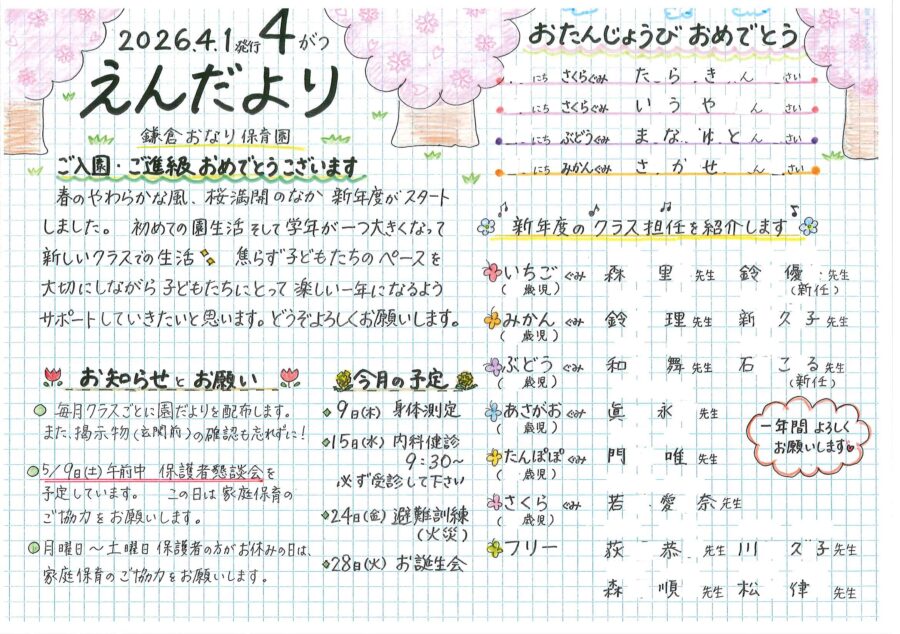 2026.4.1発行 4がつ
えんだより
鎌倉おなり保育園
ご入園・ご進級おめでとうございます
春のやわらかな風、桜満開のなか 新年度がスタート
しました。 初めての園生活 そして学年が一つ大きくなって
新しいクラスでの生活 焦らず子どもたちのペースを
大切にしながら子どもたちにとって楽しい一年になるよう
サポートしていきたいと思います。どうぞよろしくお願いします。
お知らせとお願い
毎月クラスごとに園だよりを配布します。
また、掲示物(玄関前)の確認も忘れずに!
5/9日(土)午前中 保護者懇談会を
予定しています。 この日は家庭保育の
ご協力をお願いします。
月曜日~土曜日 保護者の方がお休みの日は、
家庭保育のご協力をお願いします。
今月の予定
9日(木) 身体測定
15日(水) 内科健診
9:30~
必ず受診して下さい
24日(金) 避難訓練
(火災)
28日(火) お誕生会
おたんじょうび おめでとう
にち さくらぐみ た ら き ん さい
にち さくらぐみ い う や ん さい
にち ぶどうぐみ ま な ゆ と ん さい
にち みかんぐみ さ か せ ん さい
新年度のクラス担任を紹介します
いちごぐみ 森 里 先生 鈴 優 先生
( 歳児) (新任)
みかんぐみ 鈴 理 先生 新 久子 先生
( 歳児)
ぶどうぐみ 和 舞 先生 石 こる 先生
( 歳児) (新任)
あさがおぐみ 眞 永 先生
( 歳児)
たんぽぽぐみ 門 唯 先生
( 歳児)
さくらぐみ 若 愛奈 先生
( 歳児)
フリー 荻 恭 先生 川 久子 先生
森 順 先生 松 律 先生
一年間よろしく
お願いします